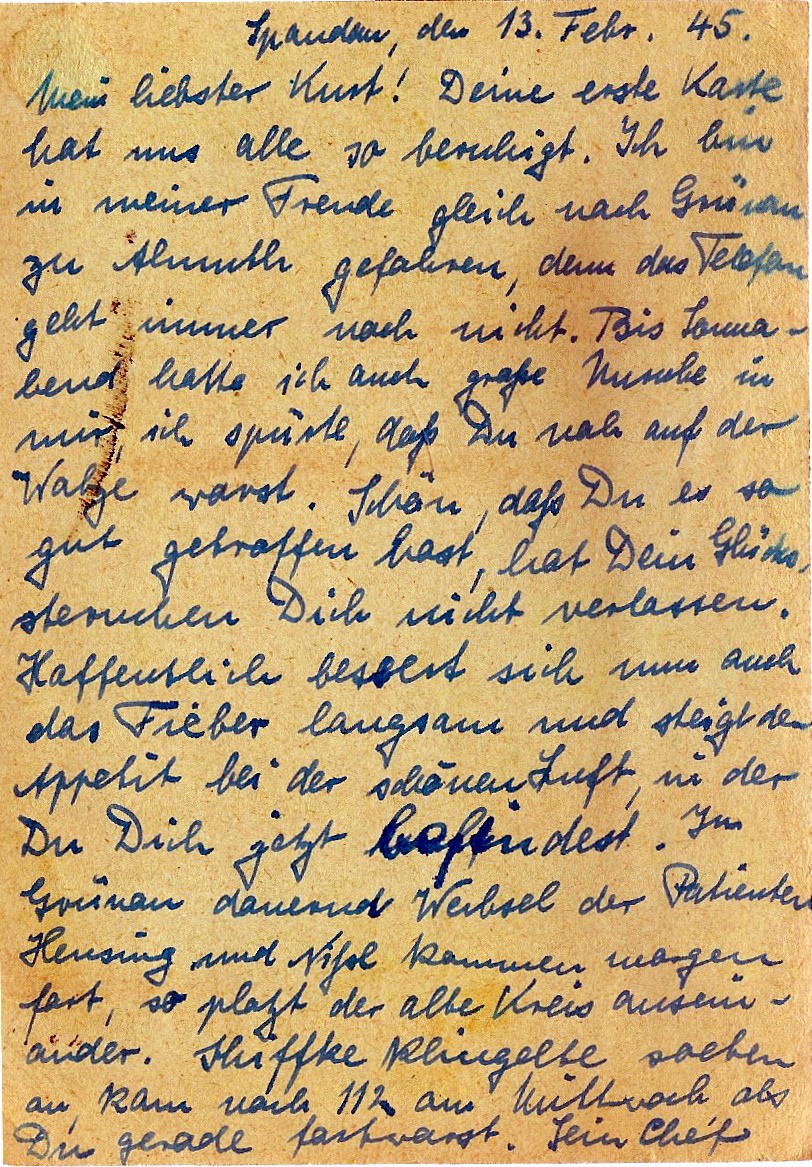 Spandau, den 13. Febr. 45.
Mein liebster Kurt! Deine erste Karte
hat uns alle so beruhigt. Ich bin
in meiner Freude gleich nach Grünau
zu Almuth gefahren, denn das Telefon
geht immer noch nicht. Bis Sonna-
bend hatte ich auch große Unruhe in
mir, ich spürte, daß Du noch auf der
Walze warst. Schön, daß Du es so
gut getroffen hast, hat Dein Glücks-
sternchen Dich nicht verlassen.
Hoffentlich bessert sich nun auch
das Fieber langsam und steigt der
Appetit bei der schönen Luft, in der
Du Dich jetzt befindest. In
Grünau dauernd Wechsel der Patienten
Hensing und Nißl kommen morgen
fort, so platzt der alte Kreis ausein-
ander. klingelte soeben
an, kam nach 112 am Mittwoch als
Du gerade fortwarst. Sein Chef